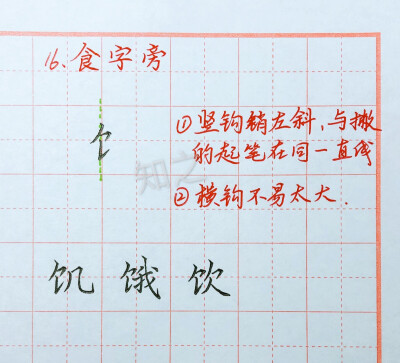 16、食字旁
饣
①竖钩稍左斜,与撇
的起笔在同一直线
②横钩不易太大.
知之
饥 饿 饮